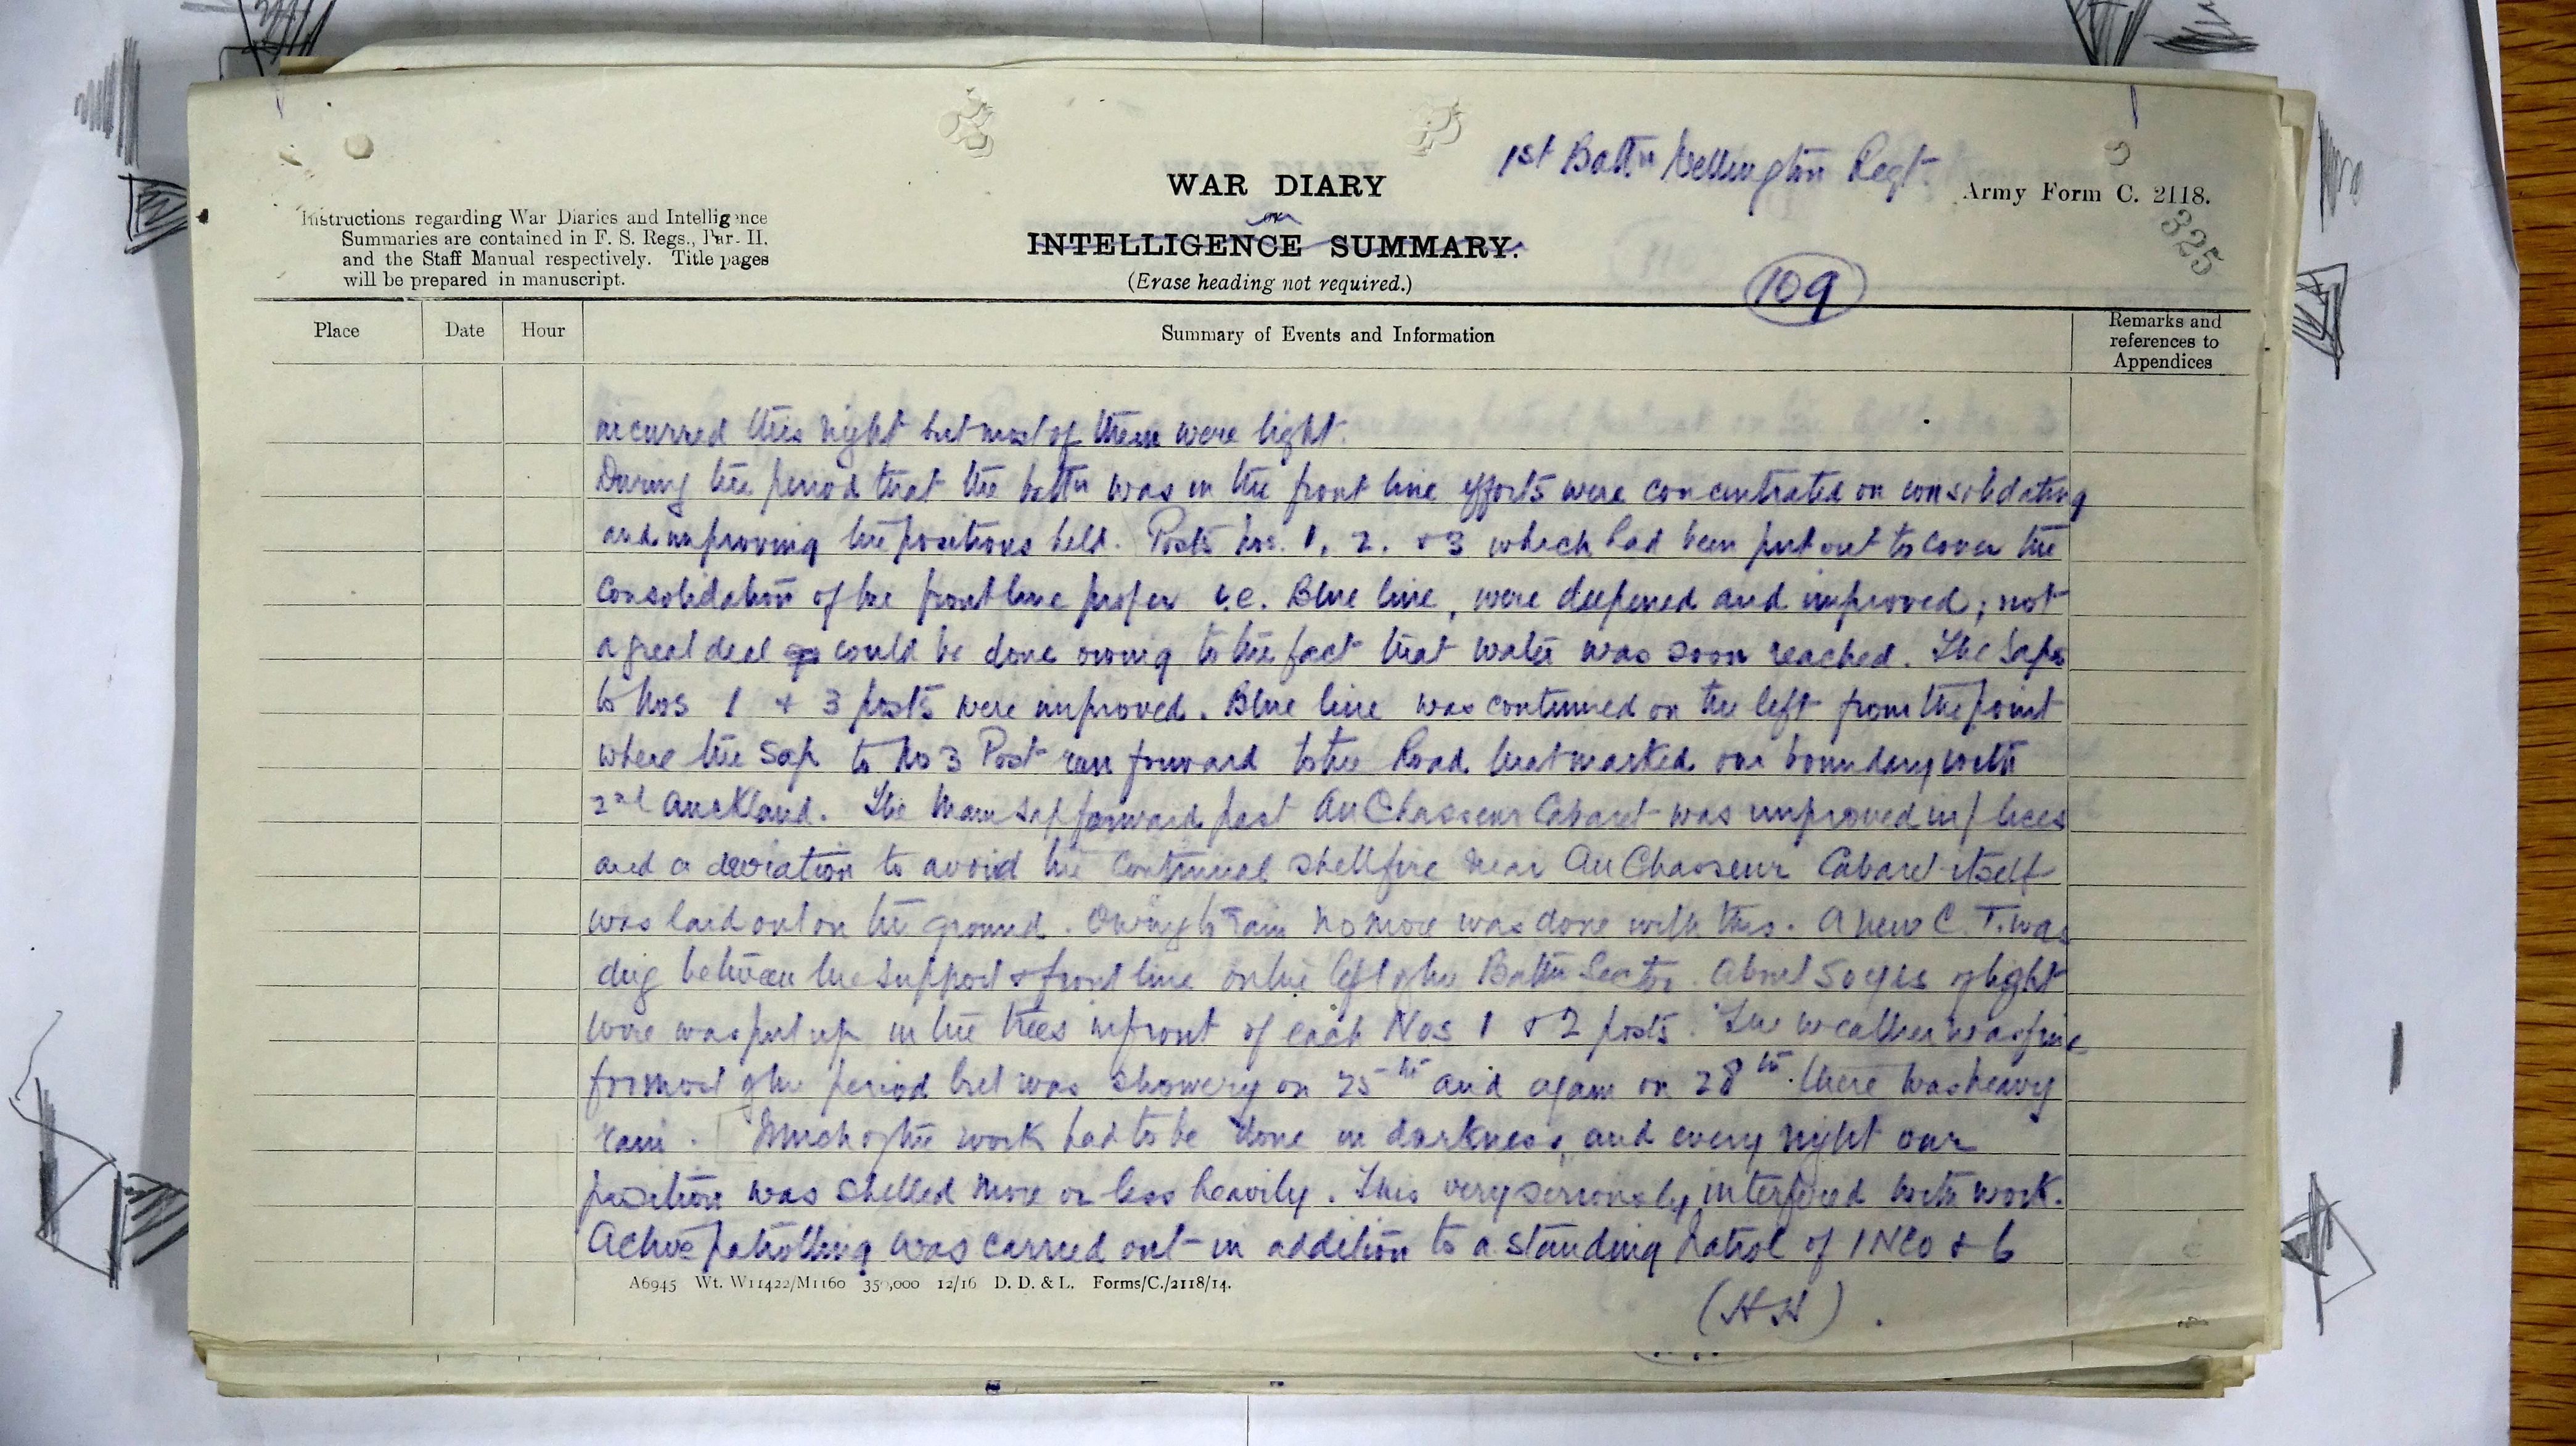 1st Battn Wellington Regt.
WAR DIARY
or
INTELLIGENCE SUMMARY.
(Erase heading not required.)
Army Form C. 2118.
325
109
Instructions regarding War Diaries and Intelligence
Summaries are contained in F. S. Regs., Par. II.
and the Staff Manual respectively. Title pages
will be prepared in manuscript.
Place Date Hour Summary of Events and Information Remarks and
references to
Appendices
incurred this night but most of them were light.
During the period that the battn was in the front line efforts were concentrated on consolidating
and improving the positions held. Posts Nos. 1, 2. & 3 which had been put out to cover the
consolidation of the front line proper i.e. Blue line, were deepened and improved; not
a great deal could be done owing to the fact that water was soon reached. The saps
to Nos 1 & 3 posts were improved. Blue line was continued on the left from the point
where the sap to No 3 Post ran forward to the Road that marked our boundary with
2nd Auckland. The Main sap forward past Au Chasseur Cabaret was improved in places
and a deviation to avoid the continual shellfire near Au Chasseur Cabaret itself
was laid out on the ground. Owing to rain no more was done with this. A new C. T. was
dug between the support & front line on the left of the Battn Sector. About 50 yds of light
wire was put up in the trees in front of each Nos 1 & 2 posts. The weather was fine
for most of the period but was showery on 25th and again on 28th there was heavy
rain. Much of the work had to be done in darkness, and every night our
position was shelled more or less heavily. This very seriously interfered with work.
Active patrolling was carried out in addition to a standing patrol of 1 NCO & 6
A6945 Wt. W11422/M1160 350,000 12/16 D. D. & L. Forms/C./2118/14.